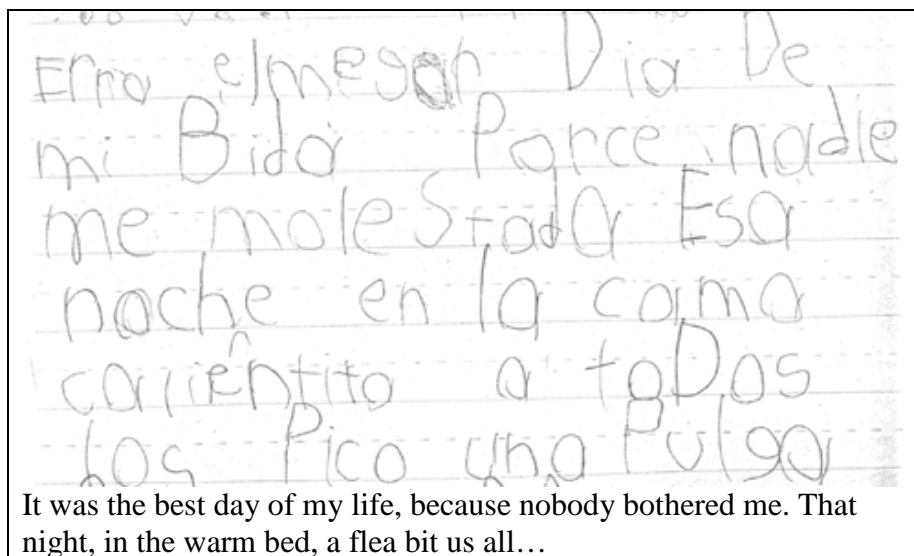 Erra Dia De
mi Bida Porce nadie
me moleStada Esa
noche en la cama
calientito a toDos
Los Pico una Pulga
It was the best day of my life, because nobody bothered me. That
night, in the warm bed, a flea bit us all…